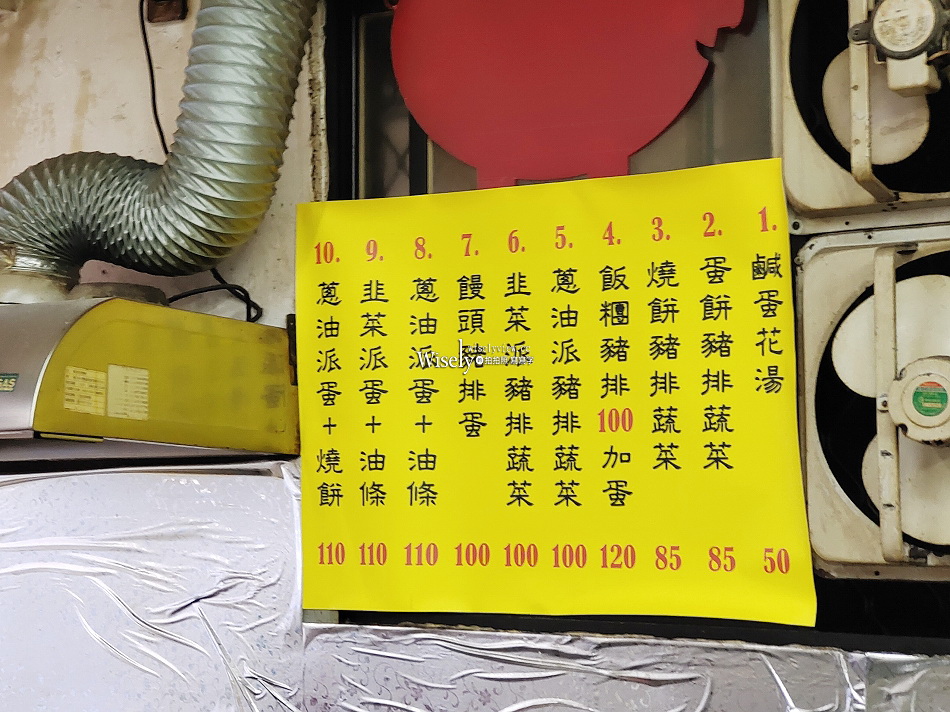 1. 鹹蛋花湯 50
2. 蛋餅豬排蔬菜 85
3. 燒餅豬排蔬菜 85
4. 飯糰豬排100加蛋 120
5. 蔥油派豬排蔬菜 100
6. 韭菜派豬排蔬菜 100
7. 饅頭豬排蛋 100
8. 蔥油派蛋+油條 110
9. 韭菜派蛋+油條 110
10. 蔥油派蛋+燒餅 110
Wisely
GAS